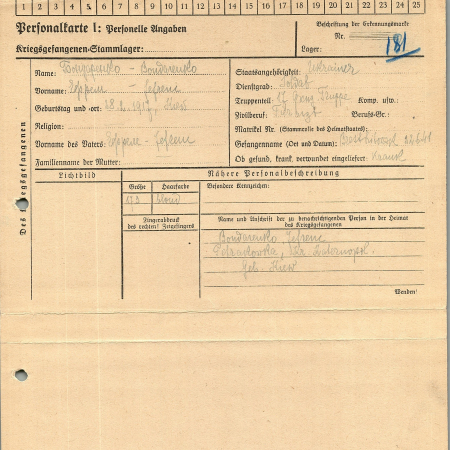 1 2 3 4 5 6 7 8 9 10 11 12 13 14 15 16 17 18 19 20 21 22 23 24 25
Personalkarte I: Personelle Angaben
Kriegsgefangenen-Stammlager:
Beschriftung der Erkennungsmarke
Nr.
Lager:
181
Des Kriegsgefangenen
Name: Бондаренко - Bondarenko
Vorname: Ефрем - Jefrem
Geburtstag und -ort: 1917, Kiew
Religion:
Vorname des Vaters: Ефрем - Jefrem
Familienname der Mutter:
Staatsangehörigkeit: Ukrainer
Dienstgrad: Soldat
Truppenteil: 17 Komp. usw.
Zivilberuf: Berufs-Gr.:
Matrikel Nr. (Stammrolle des Heimatstaates):
Gefangennahme (Ort und Datum):
Ob gefund, krank, verwundet eingeliefert: Krank
Lichtbild
Nähere Personalbeschreibung
Größe Haarfarbe
173 blond
Besondere Kennzeichen:
Fingerabdruck
des rechten! Zeigefingers
Name und Anschrift der zu benachrichtigenden Person in der Heimat
des Kriegsgefangenen
Bondarenko Jefrem
Petrakowka,
Geb. Kiew
Wenden!